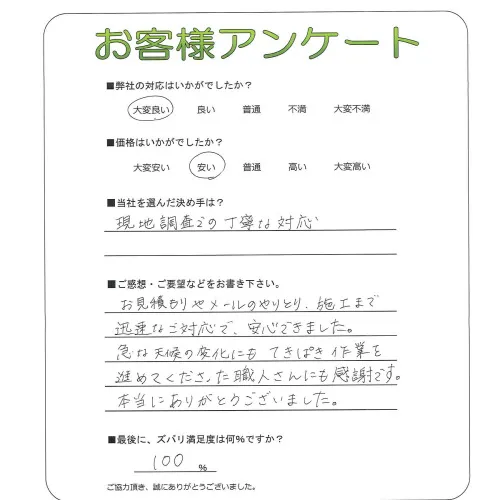 お客様アンケート
■弊社の対応はいかがでしたか？
大変良い 良い 普通 不満 大変不満
■価格はいかがでしたか？
大変安い 安い 普通 高い 大変高い
■当社を選んだ決め手は？
現地調査での丁寧な対応
■ご感想・ご要望などをお書き下さい。
お見積もりやメールのやりとり、施工まで
迅速なご対応で、安心できました。
急な天候の変化にも てきぱき作業を
進めてくださった職人さんにも感謝です。
本当にありがとうございました。
■最後に、ズバリ満足度は何%ですか？
100 %
ご協力頂き、誠にありがとうございました。